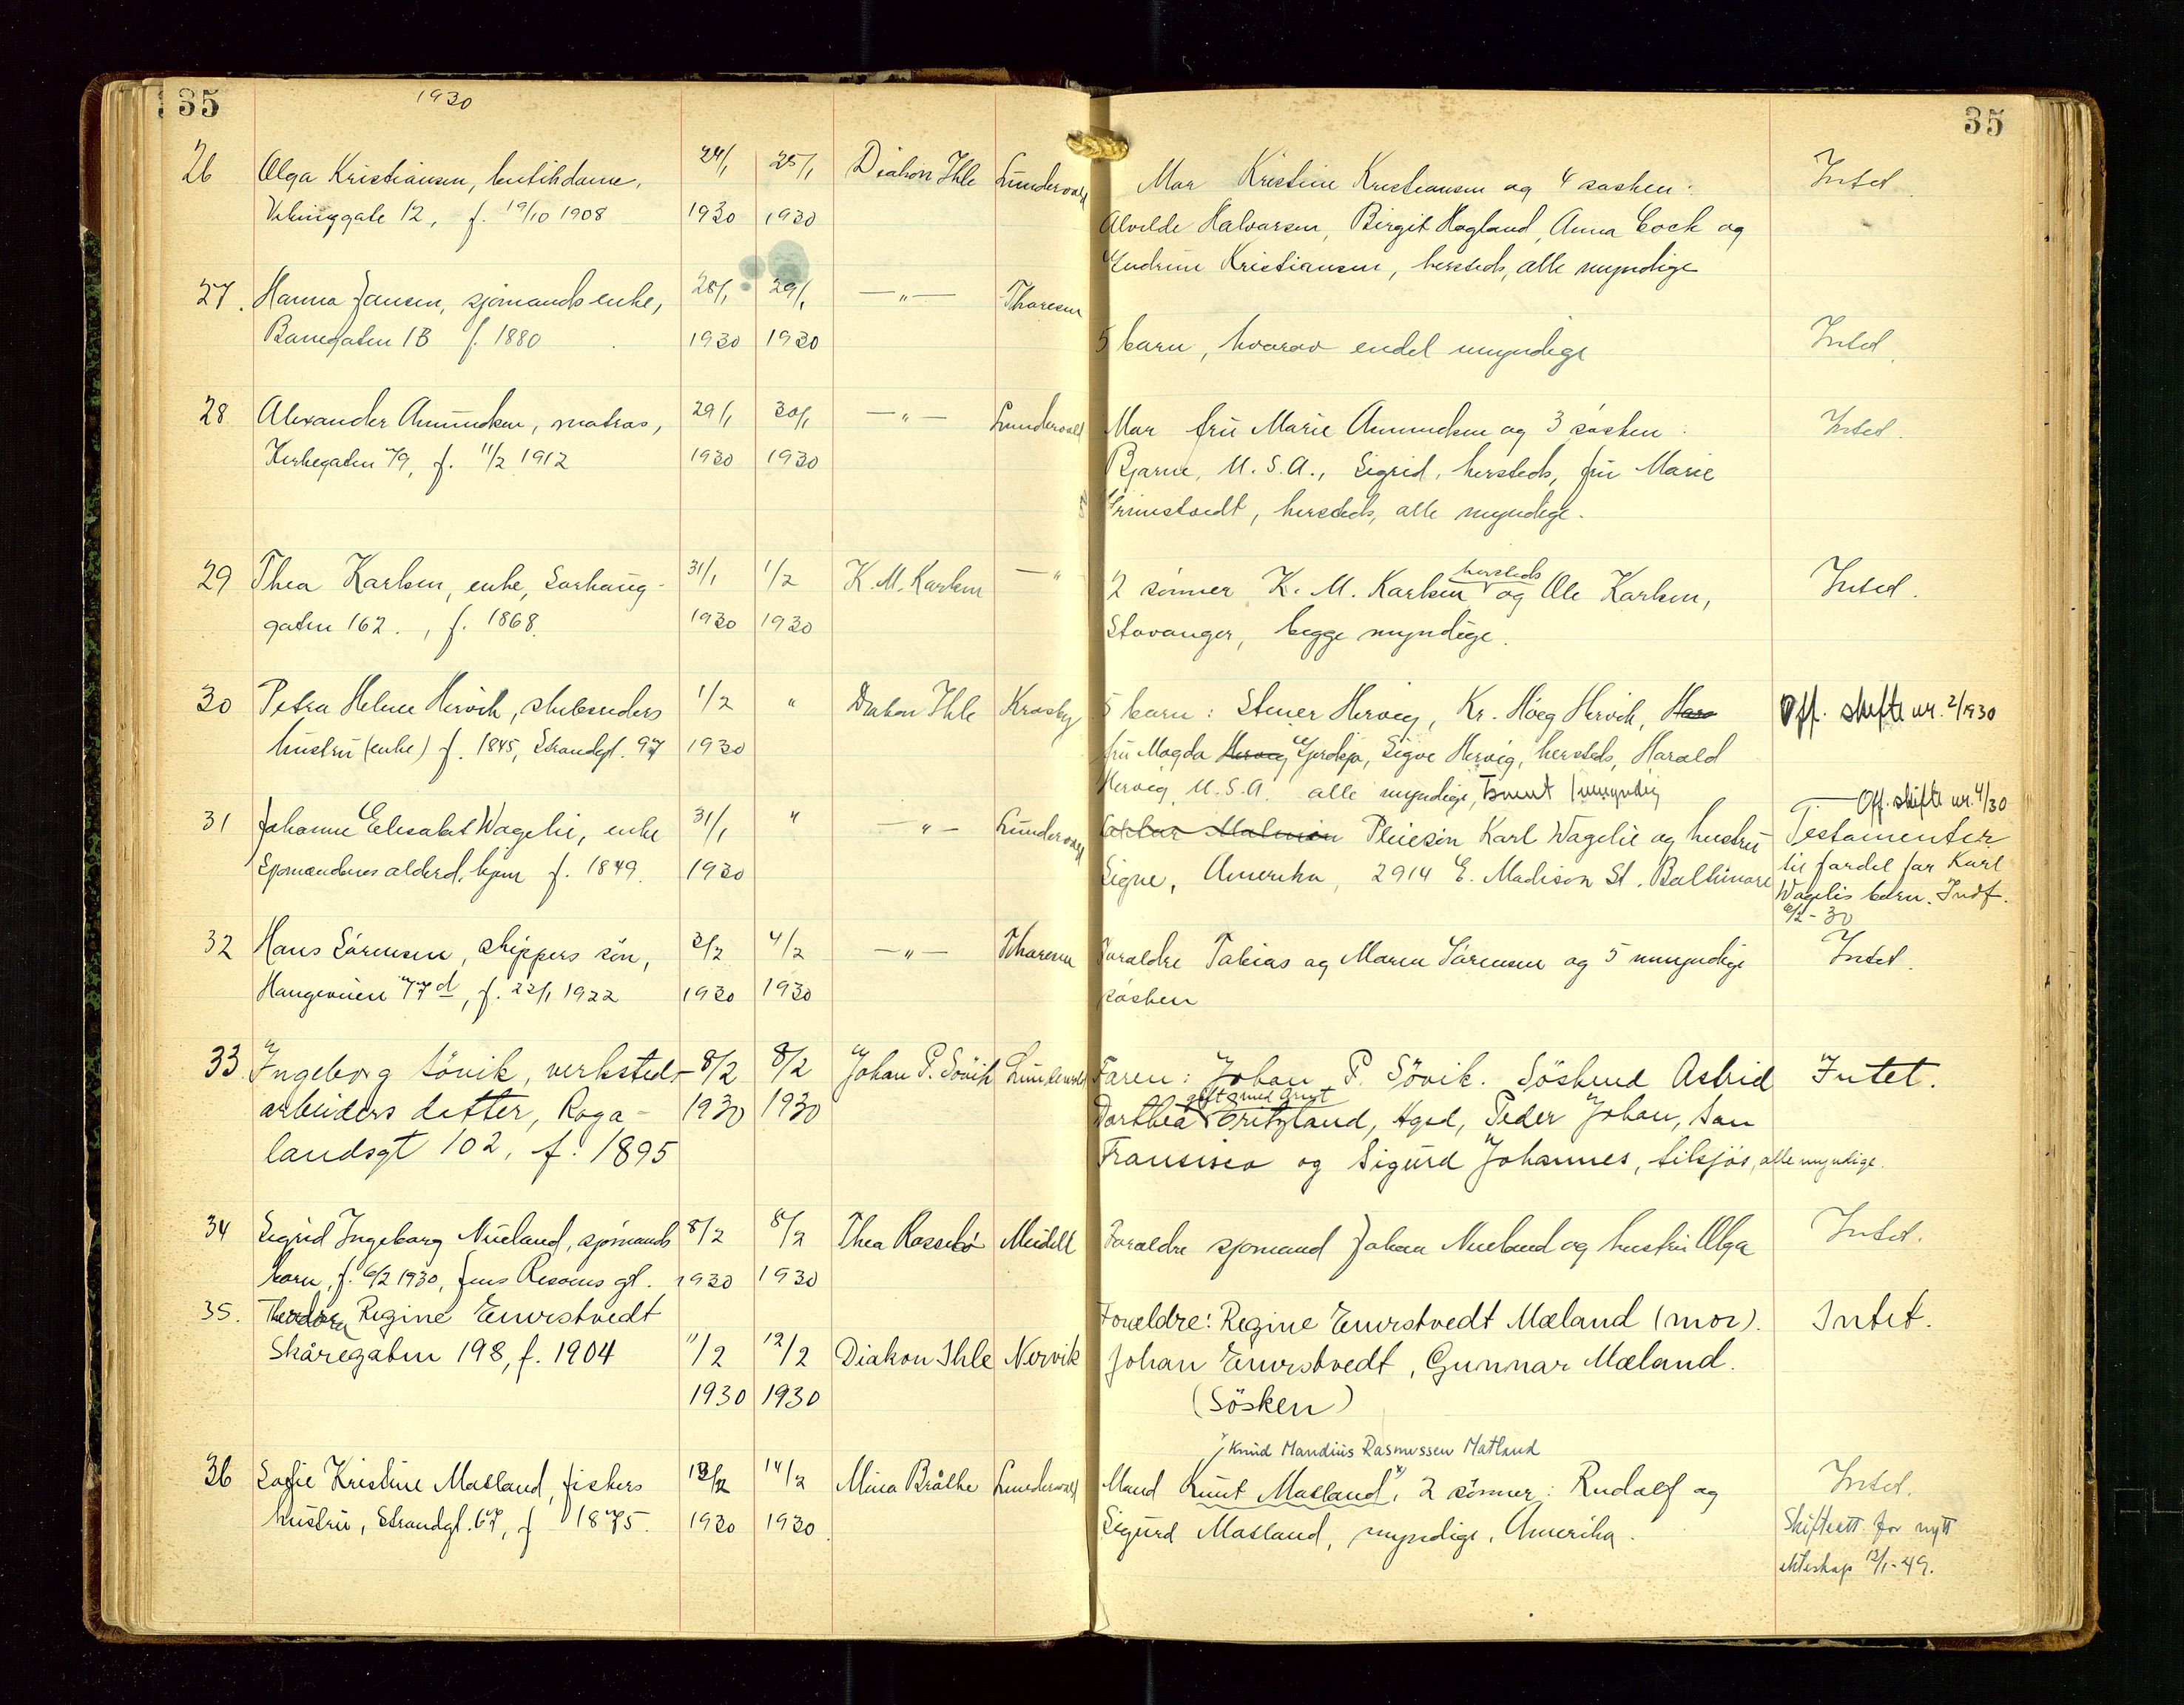 35
1930
35
26 Olga Kristiansen, butikdame, 24/1 25/1 Diakon Ihle Lundervold Mor Kristine Kristiansen og 4 søsken: Intet.
Vikinggate 12, f. 19/10 1908 1930 1930 Alvilde Halvorsen, Birgit Hagland, Anna Cock og
Gudrun Kristiansen, hersteds, alle myndige
27. Hanna Jansen, sjømands enke, 28/1 29/1 —"— Thoresen
Banegaten 13 f. 1880 1930 1930 5 barn, hvorav endel umyndige Intet.
28 Alexander Amundsen, matros, 29/1 30/1 —"— Lundervold Mor fru Marie Amundsen og 3 søsken: Intet.
Kirkegaten 79, f. 11/2 1912 1930 1930 Bjarne, U.S.A., Sigrid, hersteds, fru Marie
Grimstvedt, hersteds, alle myndige.
29 Thea Karlsen, enke, Sørhaug- 31/1 1/2 K. M. Karlsen —" 2 sønner K. M. Karlsen hersteds og Ole Karlsen, Intet.
gaten 162., f. 1868. 1930 1930 Stavanger, begge myndige.
30 Petra Helene Hervik, skibsreders 1/2 " Diakon Ihle Krosby 5 barn: Stener Hervig, Kr. Høeg Hervik, Haro Off. skifte nr. 2/1930
hustru (enke) f. 1845, Strandgt. 97 1930 fru Magda Hervig Gjerdsjø, Sigve Hervig, hersteds, Harald
Hervig, U.S.A. alle myndige,
31 Johanne Elisabet Wagelie, enke 31/1 " —"— Lundervold Pleiesøn Karl Wagelie og hustru Off. skifte nr. 4/30
Testamenter
Sjømændenes alderd. hjem f. 1849. 1930 Signe, Amerika, 2914 E. Madison St. Baltimore til fordel for Karl
Wagelis barn. Indf.
6/2-30
32 Hans Sørensen, skippers søn, 3/2 4/2 —"— Thoresen Foreldre Tobias og Maren Sørensen og 5 umyndige Intet.
Haugeveien 77d, f. 22/1 1922 1930 1930 søsken
33. Ingeborg Sövik, verksteds- 8/2 8/2 Johan P. Sövik Lundervold Faren: Johan P. Sövik. Söskend Astrid Intet.
arbeiders datter, Roga- 1930 1930 Dorthea gift med Arnt Fritzland, Hgsd, Peder Johan, San
landsgt 102, f. 1895 Fransisco og Sigurd Johannes, tilsjös, alle myndige.
34 Sigrid Ingeborg Nueland, sjømands 8/2 8/2 Thea Rossebø Meidell Foreldre sjømand Johan Nueland og hustru Olga Intet.
barn, f. 6/2 1930, Jens Risøens gt. 1930 1930
35. Theodora Regine Enerstvedt Forældre: Regine Enerstvedt Mæland (mor). Intet.
Skåregaten 198, f. 1904 11/2 12/2 Diakon Ihle Nervik Johan Enerstvedt, Gunnar Mæland.
1930 1930 (Søsken)
x) Knud Mandius Rasmussen Matland
36 Sofie Kristine Matland, fiskers 13/2 14/2 Mina Bråthe Lundervold Mand Knut Matland x), 2 sønner: Rudolf og Intet.
hustru, Strandgt. 67, f 1875. 1930 1930 Sigurd Matland, myndige, Amerika. Skifteatt. for nytt
ekteskap 13/1-49.